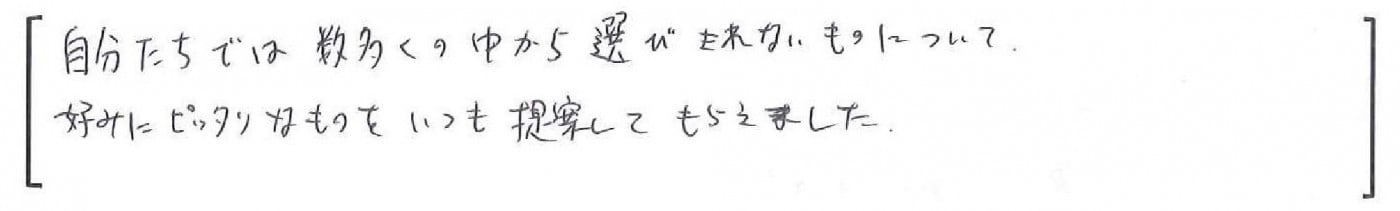 自分たちでは数多くの中から選びきれないものについて、
好みにピッタリなものをいつも提案してもらえました。